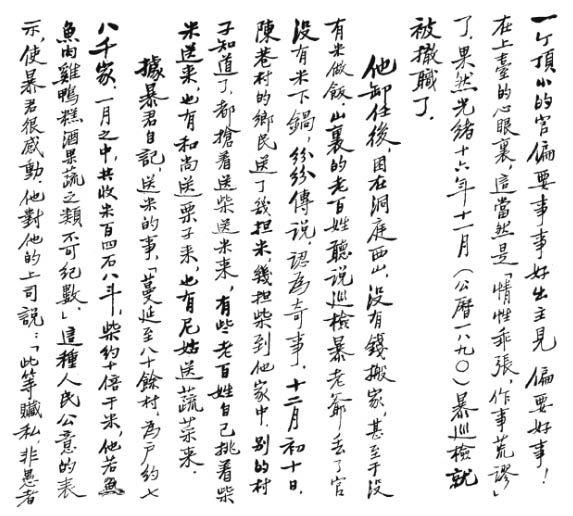 一个頂小的官偏要事事好出主見，偏要好事！
在上臺的心眼裏，這當然是「情性乖張，作事荒謬」
了。果然光緒十六年十一月（公曆一八九〇）暴巡檢就
被撤職了．
他卸任後，困在洞庭西山，没有錢搬家，甚至于没
有米做飯，山裏的老百姓聽說巡檢暴老爺丢了官
没有米下鍋，紛紛傳說，認為奇事．十二月初十日，
陳巷村的鄉民送了幾担米，幾担柴到他家中．别的村
子知道了，都搶着送柴送米來，有些老百姓自己挑着柴
米送來，也有和尚送栗子來，也有尼姑送蔬菜來．
據暴君自記，送米的事，「蔓延至八十餘村，為戶約七
八千家．一月之中，共收米百四石八斗，柴約十倍于米，他若魚
魚肉雞鴨糕酒果蔬之類不可紀數」．這種人民公意的表
示，使暴君很感動．他對他的上司說：「此等贓私，非愚者